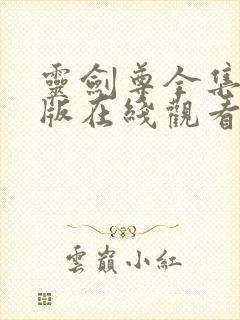 靈劍尊全集
版在綫觀看
雲巔小紅